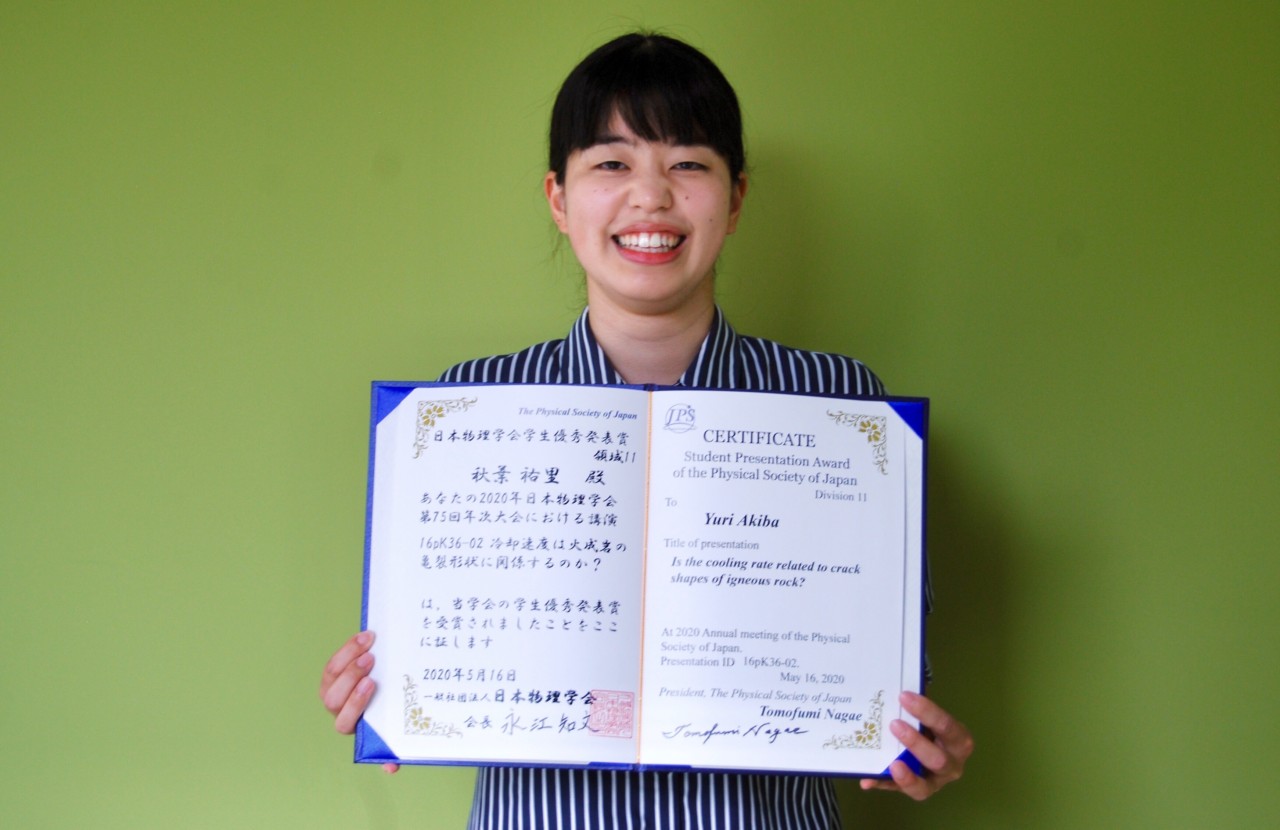 The Physical Society of Japan
日本物理学会学生優秀発表賞
領域11
秋葉 祐里 殿
あなたの2020年日本物理学会
第75回年次大会における講演
16pK36-02 冷却速度は火成岩の
亀裂形状に関係するのか？
は、当学会の学生優秀発表賞
を受賞されましたことをここ
に証します
2020年5月16日
一般社団法人日本物理学会
会長 永江知文
JPS
CERTIFICATE
Student Presentation Award
of the Physical Society of Japan
Division 11
To
Yuri Akiba
Title of presentation
Is the cooling rate related to crack
shapes of igneous rock?
At 2020 Annual meeting of the Physical
Society of Japan.
Presentation ID 16pK36-02.
May 16, 2020
President, The Physical Society of Japan
Tomofumi Nagae
Tomofumi Nagae